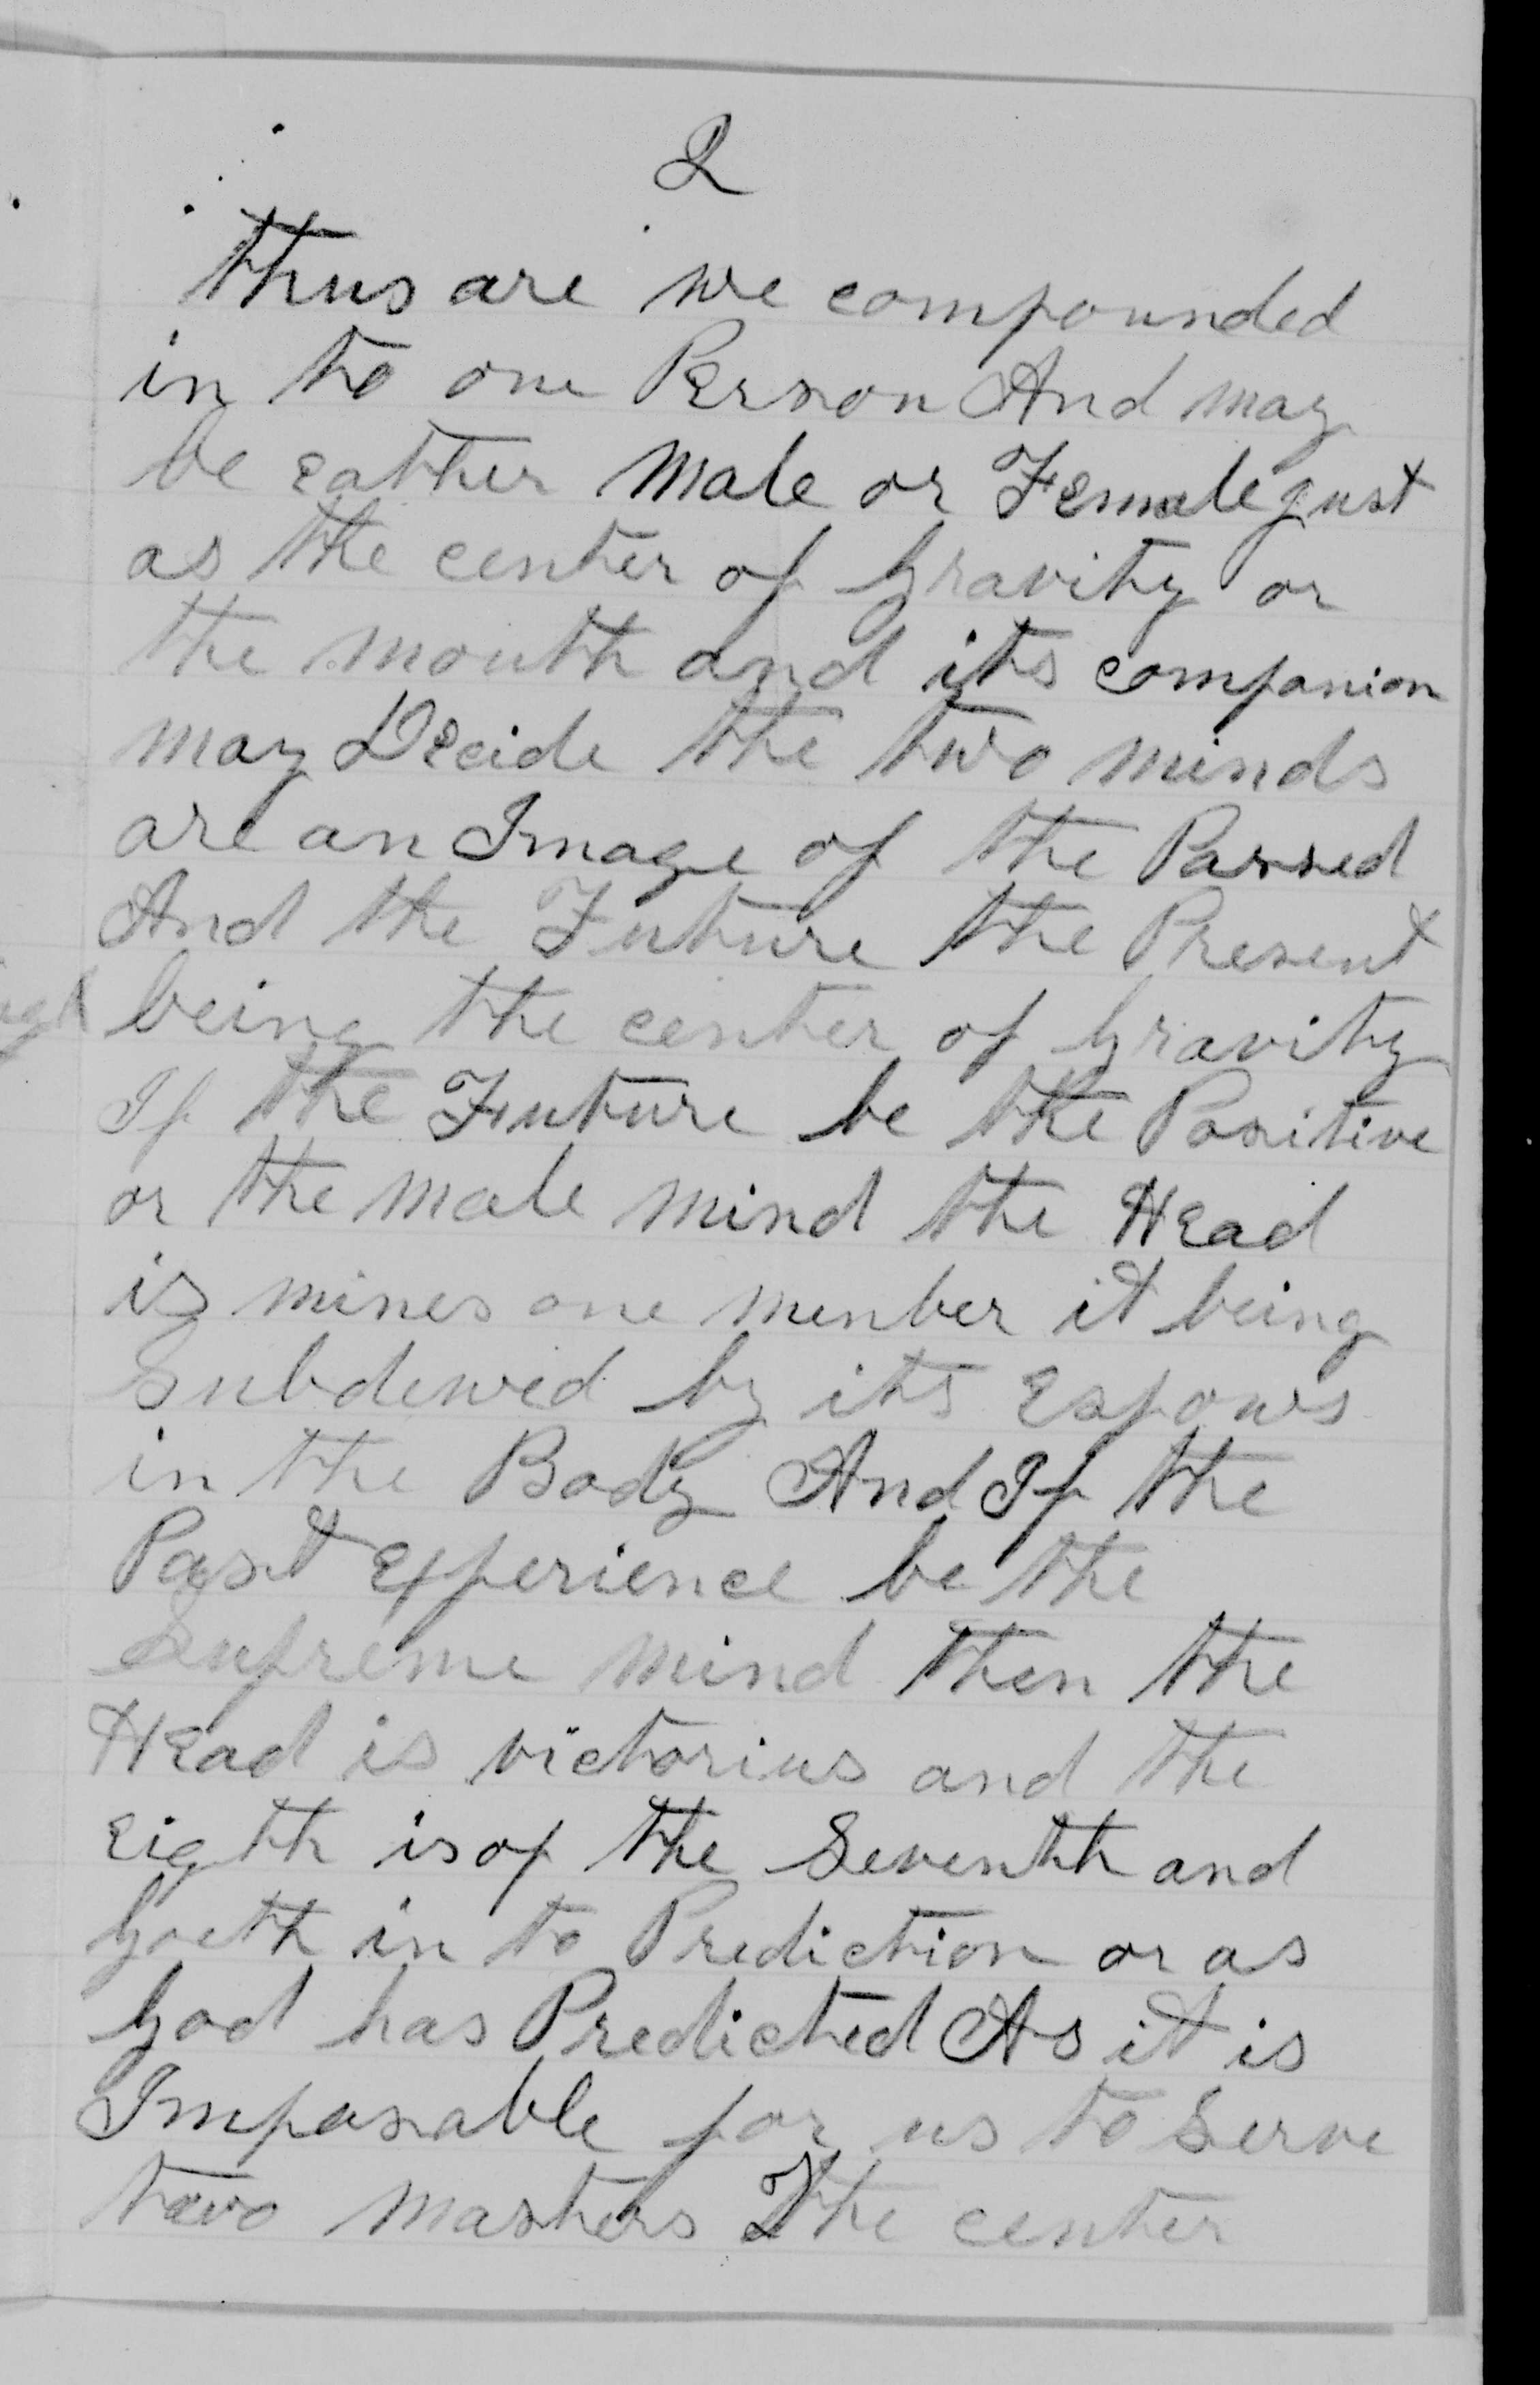 2
thus are we compounded
in to one Person And may
be eather male or Female gust
as the center of Gravity or
the mouth and its companion
may Decide the two minds
are an Image of the Passed
And the Future the Present
being the center of Gravity
If the Future be the Positive
or the male mind the Head
is mines one member it being
Subdewed by its Espows
in the Body And If the
Past Experience be the
Supreme mind then the
Head is victorius and the
Eigth is of the Seventh and
Goeth in to Prediction or as
God has Predicted As it is
Imposable for us to Serve
two masters The center